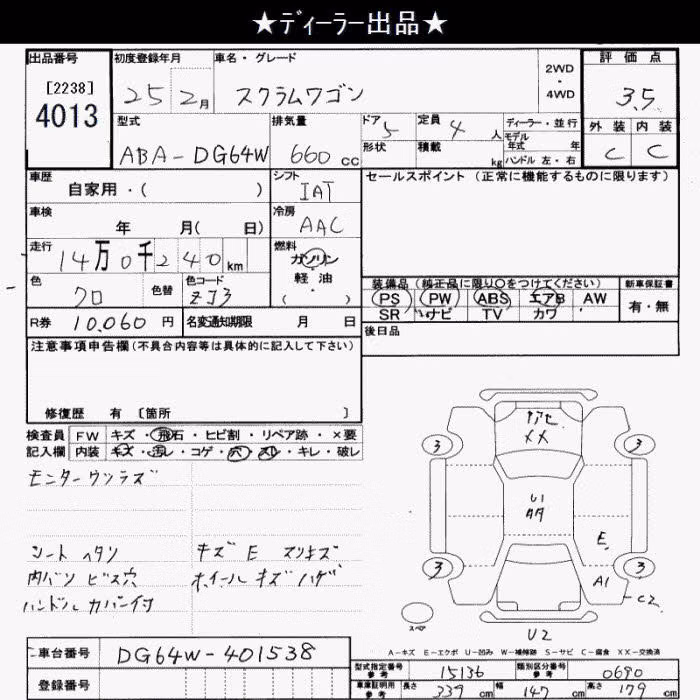 ★ディーラー出品★
出品番号
[2238]
4013
初度登録年月
25 2月
車名・グレード
スクラムワゴン
2WD
・
4WD
評価点
3.5
外装 内装
C C
型式
ABA-DG64W
排気量
660 cc
ドア 5
形状
定員 4 人
積載 kg
ディーラー・並行
モデル
年式 年
ハンドル 左・右
車歴
自家用・( )
シフト
IAT
セールスポイント (正常に機能するものに限ります)
車検
年 月( 日)
冷房
AAC
走行
14万0千240km
燃料
ガソリン
軽・油
( ・ )
色
クロ
色替
色コード
ZJ3
装備品 (純正品に限り○をつけてください)
PS PW ABS エアB AW
SR ナビ TV カワ
新車保証書
有・無
R券 10,060 円
名変通知期限 月 日
後日品
注意事項申告欄(不具合内容等は具体的に記入して下さい)
修復歴 有 [箇所 ]
検査員
記入欄
FW キズ・飛石・ヒビ割・リペア跡・×要
内装 キズ・汚レ・コゲ・穴・スレ・キレ・破レ
モニターウツラズ
シート ヘタリ
内バリ ビス穴
ハンドル カバー付
キズ E スリキズ
ホイール キズ ハゲ
XX
3 3
U1
E
3 3
A1
C2
スペア
U2
A-キズ E-エクボ U-凹み W-補修跡 S-サビ C-腐食 XX-交換済
車台番号 DG64W-401538
登録番号
型式指定番号
参考
15136
類別区分番号
参考
0690
車庫証明用
参考
長さ 339 cm
幅 147 cm
高さ 179 cm